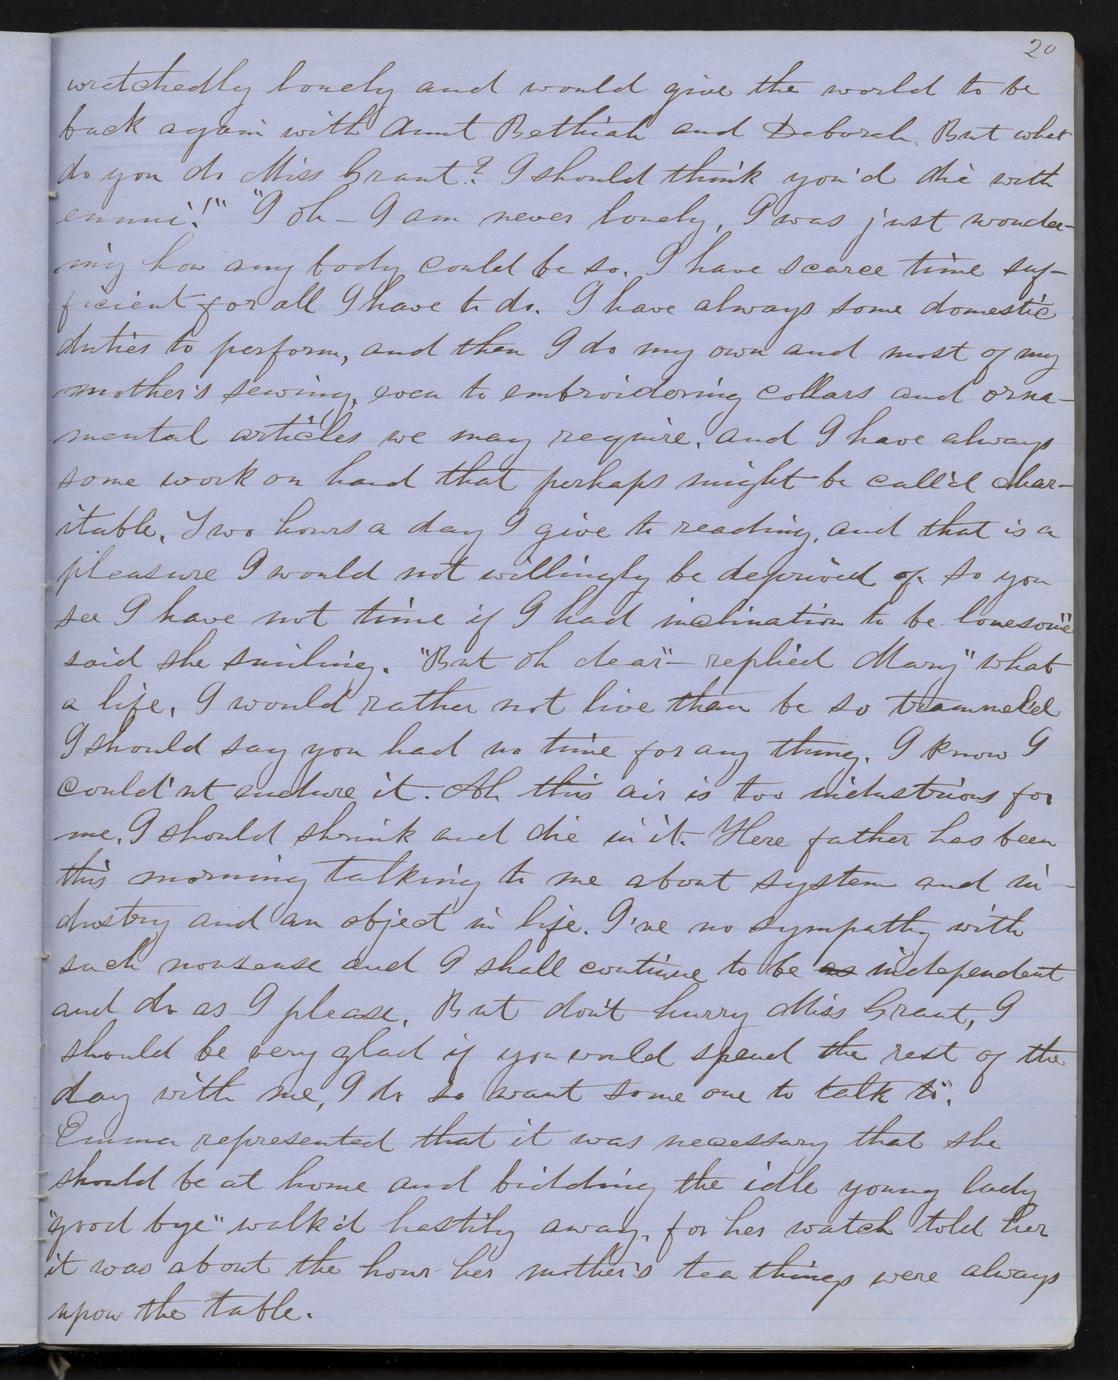 20
wretchedly lonely and would give the world to be
back again with Aunt Bethiah and Deborah. But what
do you do Miss Grant? I should think you'd die with
ennui!" "I oh — I am never lonely, I was just wonder-
ing how any body could be so. I have scarce time suf-
ficient for all I have to do. I have always some domestic
duties to perform, and then I do my own and most of my
mother's sewing, even to embroidering collars and orna-
mental articles we may require, and I have always
some work on hand that perhaps might be call'd char-
itable. Two hours a day I give to reading, and that is a
pleasure I would not willingly be deprived of. So you
see I have not time if I had inclination to be lonesome"
said she smiling. "But oh dear" — replied Mary "what
a life, I would rather not live than be so trammel'd
I should say you had no time for any thing. I know I
could'nt endure it. Ah this air is too industrious for
me, I should shrink and die in it. Here father has been
this morning talking to me about system and in-
dustry and an object in life. I've no sympathy with
such nonsense and I shall continue to be as independent
and do as I please. But don't hurry Miss Grant, I
should be very glad if you would spend the rest of the
day with me, I do so want some one to talk to".
Emma represented that it was necessary that she
should be at home and bidding the idle young lady
"good bye" walk'd hastily away, for her watch told her
it was about the hour her mother's tea things were always
upon the table.